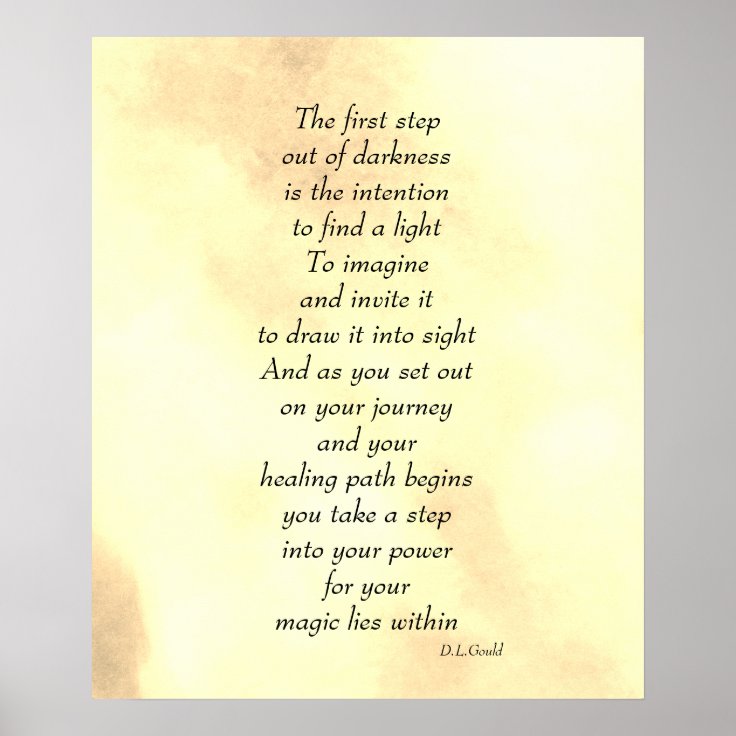 The first step
out of darkness
is the intention
to find a light
To imagine
and invite it
to draw it into sight
And as you set out
on your journey
and your
healing path begins
you take a step
into your power
for your
magic lies within
D.L.Gould